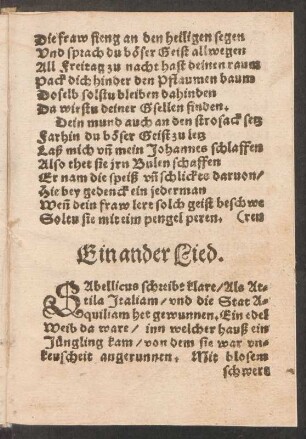 Die fraw fieng an den heiligen segen
Vnd sprach du böser Geist allwegen
All Freitag zu nacht hast deinen raum
Pack dich hinder den Pflaumen baum
Doselb solstu bleiben dahinden
Da wirstu deiner Gsellen finden.
Dein mund auch an den strosack setz
Farhin du böser Geist zu letz
Laß mich vñ mein Johannes schlaffen
Also thet sie jrn Bulen schaffen
Er nam die speiß vñ schlickte daruon/
Hie bey gedenck ein jederman
Weñ dein fraw lert solch geist beschwe
Soltu sie mit eim pengel peren. (ren
Ein ander Lied.
SAbellicus schreibt klare/Als At-
tila Italiam/vnd die Stat A-
quiliam het gewunnen. Ein edel
Weib da ware/ inn welcher hauß ein
Jüngling kam/von dem sie war vn-
keuscheit angerunnen. Mit blosem
schwert